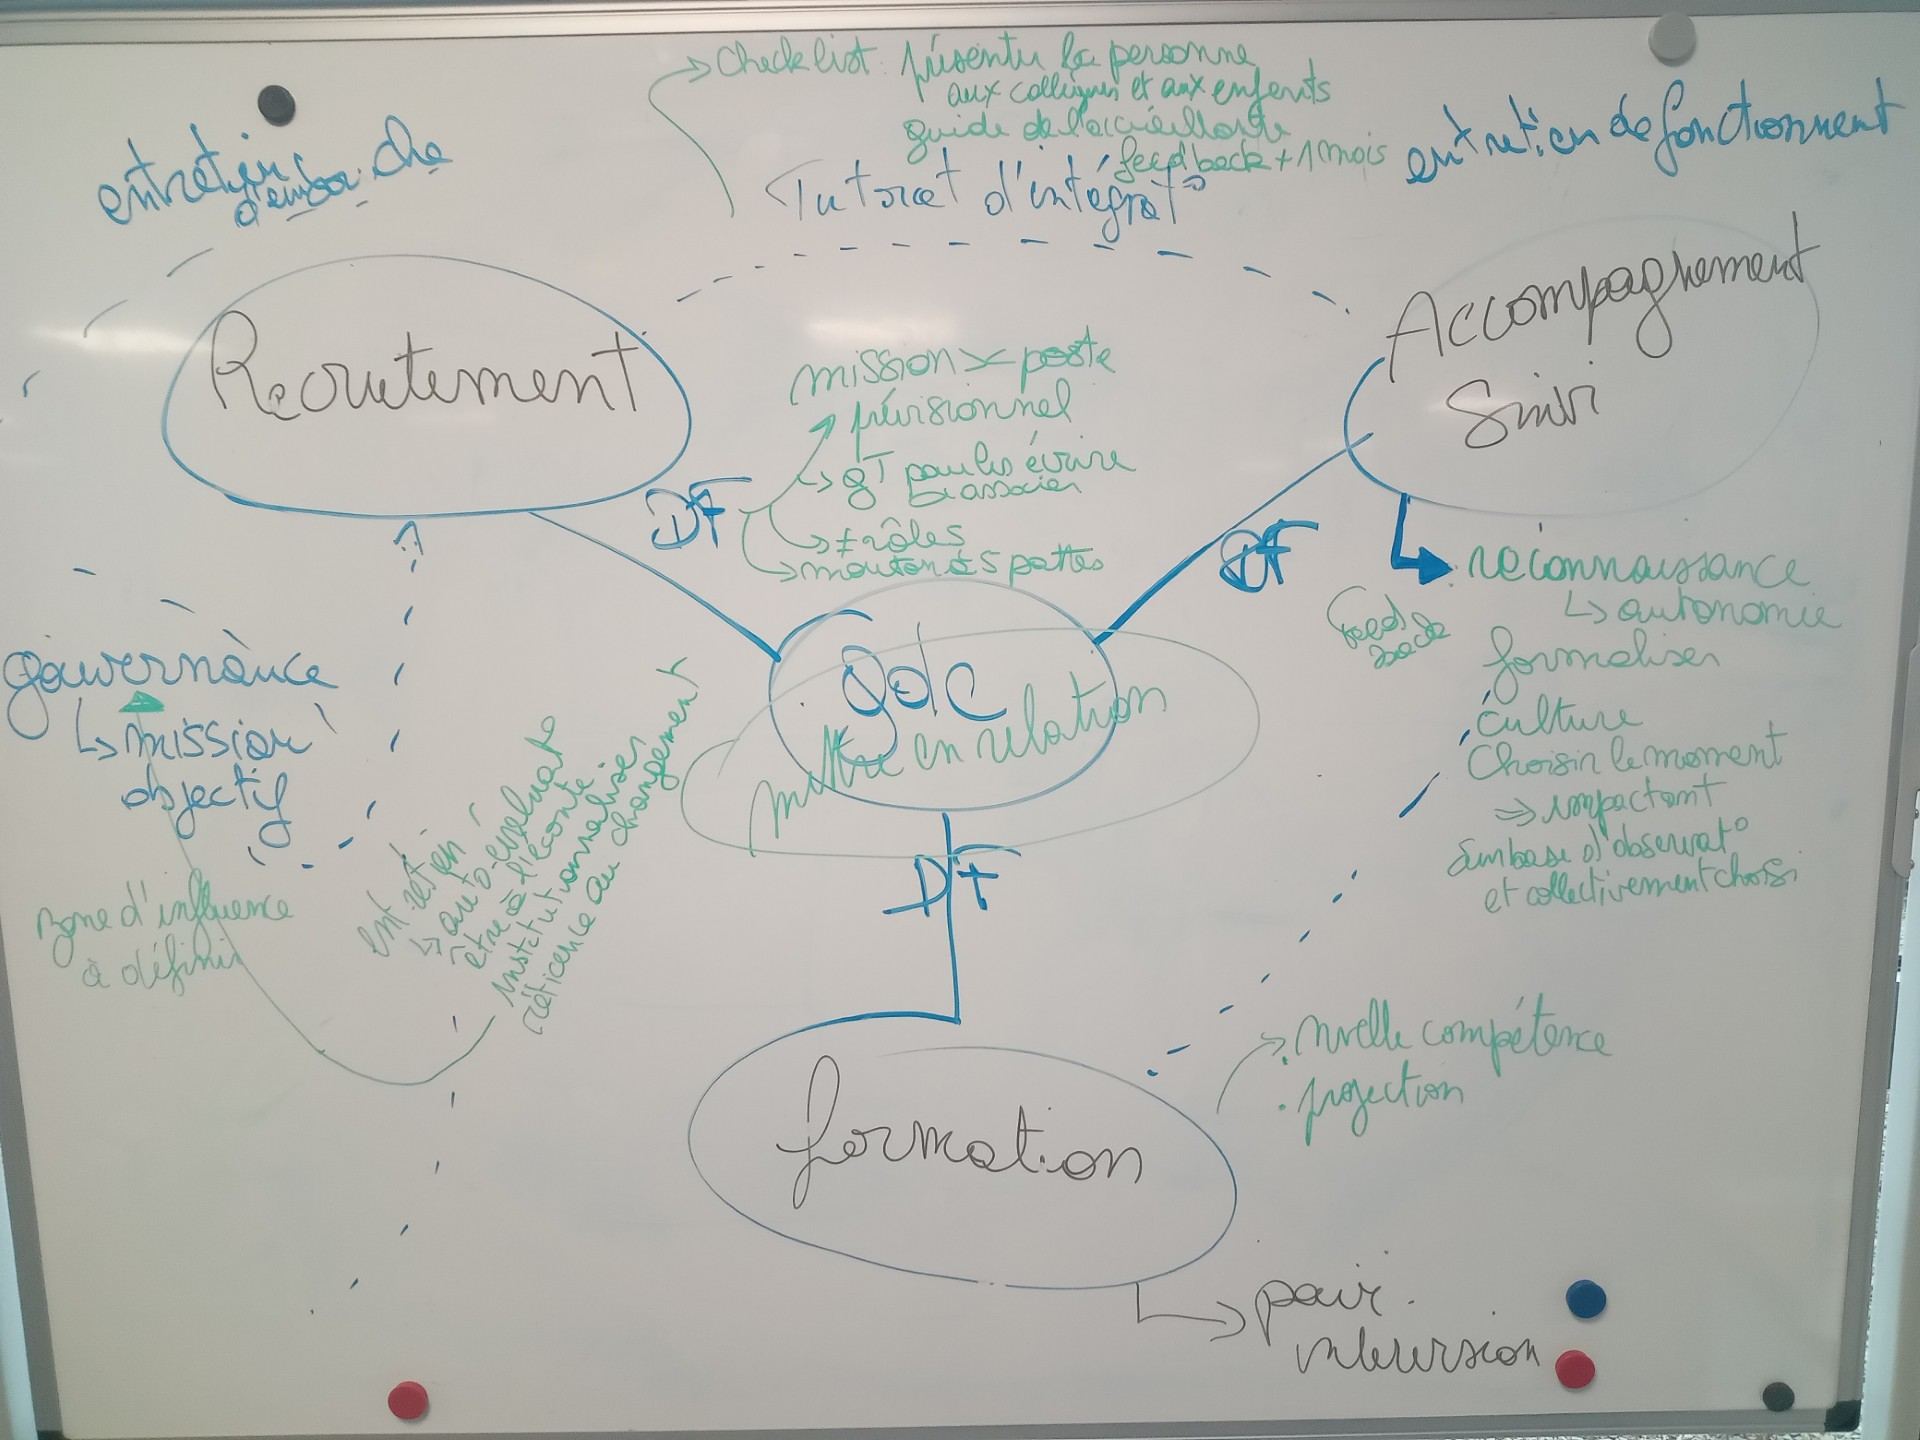 checklist : présenter la personne
aux collègues et aux enfants
guide de l'accueillante
feedback + 1 mois
entretien
d'embauche
Tutorat d'intégrat°
entretien de fonctionnement
Recrutement
Accompagnement
Suivi
mission >< poste
prévisionnel
gT pour les écrire
associer
DF
≠ rôles
mouton à 5 pattes
DF
reconnaissance
↳ autonomie
Feed
back
formaliser
culture
Choisir le moment
⇒ impactant
Sur base d'observat°
et collectivement choisi
gdc
mettre en relation
gouvernance
↳ mission
objectif
zone d'influence
à définir
entretien
↳ auto-évaluat°
être à l'écoute
institutionnaliser
réticence au changement
DF
formation
nvelle compétence
. projection
pair.
intervision